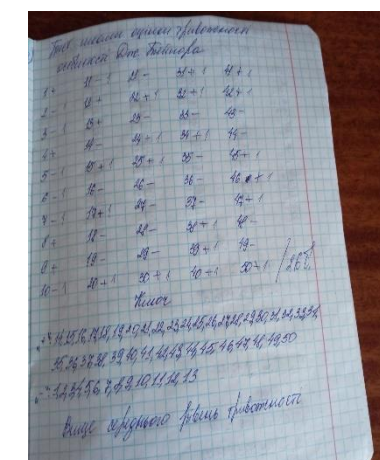 Тест шкали оцінки тривожності
особистості Дж. Тейлора
1 + 11 - 1 21 - 31 + 1 41 + 1
2 - 12 + 22 + 1 32 + 1 42 + 1
3 - 1 13 + 23 - 33 - 43 -
4 + 14 - 24 + 1 34 + 1 44 -
5 - 1 15 + 1 25 + 1 35 - 45 + 1
6 - 1 16 - 26 - 36 - 46 + 1
7 - 1 17 + 1 27 - 37 - 47 + 1
8 + 18 - 28 - 38 + 1 48 -
9 + 19 - 29 - 39 + 1 49 -
10 - 1 20 + 1 30 + 1 40 + 1 50 + 1
Ключ
"+" 14, 15, 16, 17, 18, 19, 20, 21, 22, 23, 24, 25, 26, 27, 28, 29, 30, 31, 32, 33, 34,
35, 36, 37, 38, 39, 40, 41, 42, 43, 44, 45, 46, 47, 48, 49, 50
"-" 1, 2, 3, 4, 5, 6, 7, 8, 9, 10, 11, 12, 13
Вище середнього рівень тривожності